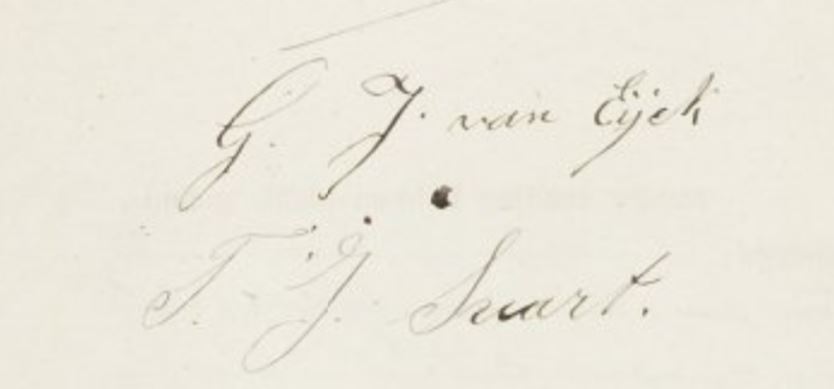 G. J. van Eÿck
T. J. Swart.